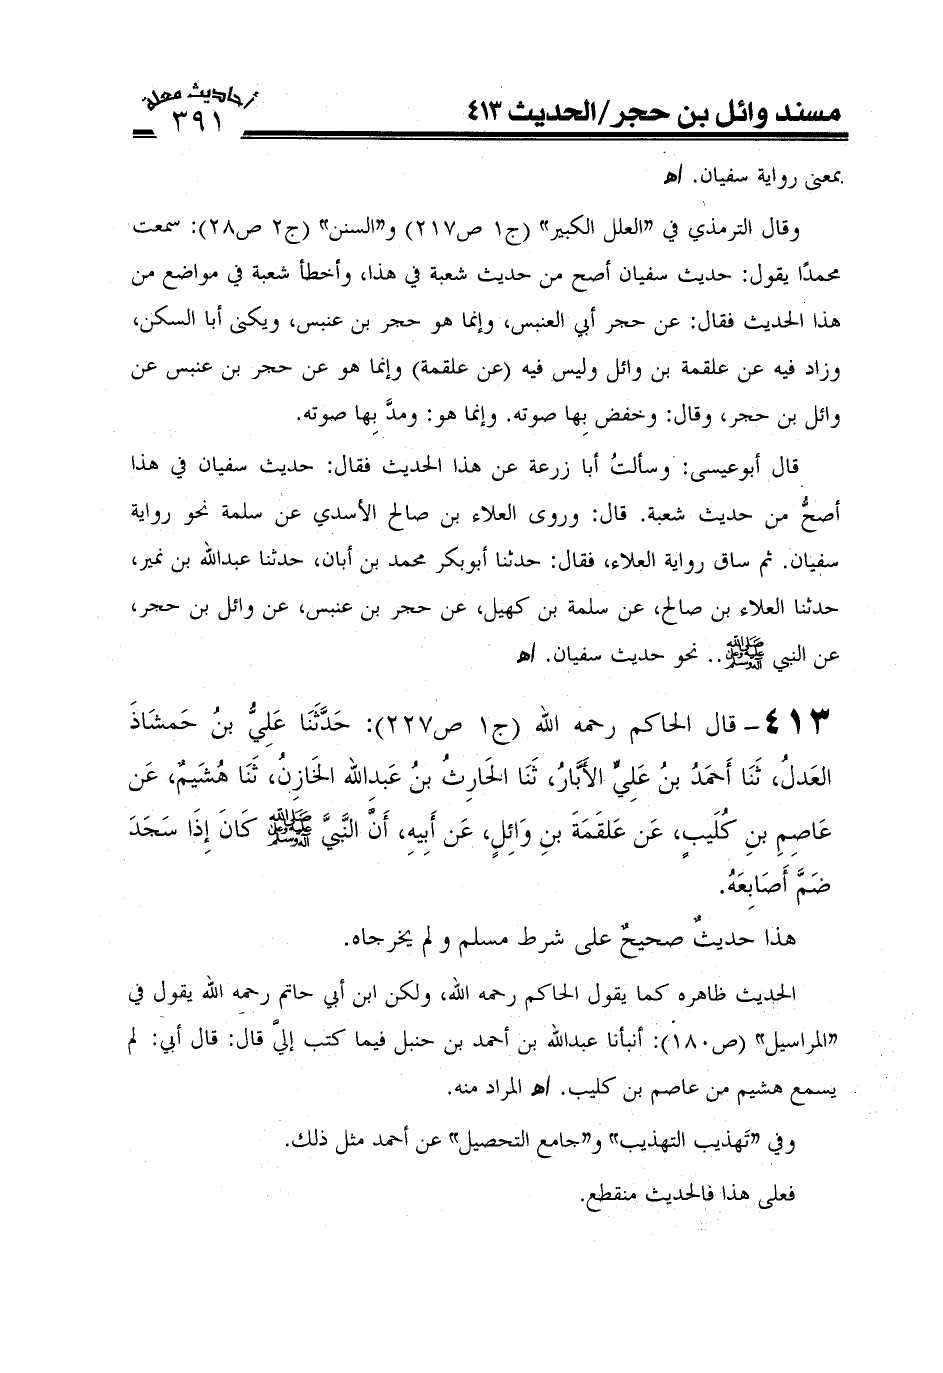 مسند وائل بن حجر/الحديث ٤١٣
أحاديث معلة
٣٩١
بمعنى رواية سفيان. اهـ
وقال الترمذي في «العلل الكبير» (ج١ ص٢١٧) و«السنن» (ج٢ ص٢٨): سمعت
محمدًا يقول: حديث سفيان أصح من حديث شعبة في هذا، وأخطأ شعبة في مواضع من
هذا الحديث فقال: عن حجر أبي العنبس، وإنما هو حجر بن عنبس، ويكنى أبا السكن،
وزاد فيه عن علقمة بن وائل وليس فيه (عن علقمة) وإنما هو عن حجر بن عنبس عن
وائل بن حجر، وقال: وخفض بِها صوته. وإنما هو: ومدَّ بِها صوته.
قال أبوعيسى: وسألتُ أبا زرعة عن هذا الحديث فقال: حديث سفيان في هذا
أصحُّ من حديث شعبة. قال: وروى العلاء بن صالح الأسدي عن سلمة نحو رواية
سفيان. ثم ساق رواية العلاء، فقال: حدثنا أبوبكر محمد بن أبان، حدثنا عبدالله بن نمير،
حدثنا العلاء بن صالح، عن سلمة بن كهيل، عن حجر بن عنبس، عن وائل بن حجر،
عن النبي ﷺ.. نحو حديث سفيان. اهـ
٤١٣- قال الحاكم رحمه الله (ج١ ص٢٢٧): حَدَّثَنَا عَلِيُّ بنُ حَمشَاذَ
العَدلُ، ثَنَا أَحمَدُ بنُ عَلِيٍّ الأَبَّارُ، ثَنَا الحَارِثُ بنُ عَبدِالله الخَازِنُ، ثَنَا هُشَيمٌ، عَن
عَاصِمِ بنِ كُلَيبٍ، عَن عَلقَمَةَ بنِ وَائِلٍ، عَن أَبِيهِ، أَنَّ النَّبِيَّ ﷺ كَانَ إِذَا سَجَدَ
ضَمَّ أَصَابِعَهُ.
هذا حديثٌ صحيحٌ على شرط مسلم و لم يخرجاه.
الحديث ظاهره كما يقول الحاكم رحمه الله، ولكن ابن أبي حاتم رحمه الله يقول في
«المراسيل» (ص١٨٠): أنبأنا عبدالله بن أحمد بن حنبل فيما كتب إليَّ قال: قال أبي: لم
يسمع هشيم من عاصم بن كليب. اهـ المراد منه.
وفي «تَهذيب التهذيب» و«جامع التحصيل» عن أحمد مثل ذلك.
فعلى هذا فالحديث منقطع.